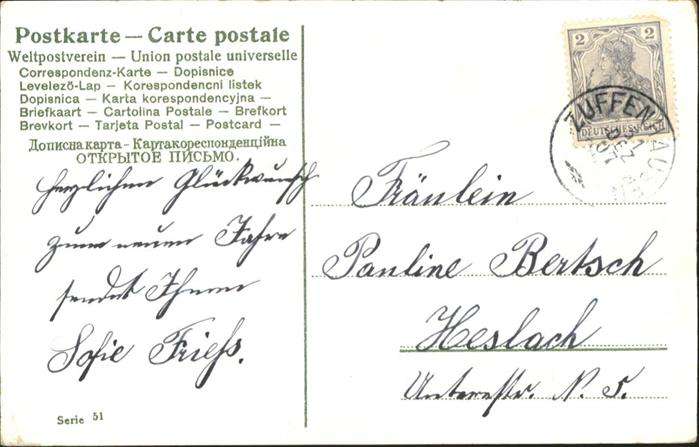 Postkarte — Carte postale
Weltpostverein — Union postale universelle
Correspondenz-Karte — Dopisnice
Levelező-Lap — Korespondencni listek
Dopisnica — Karta korespondencyjna —
Briefkaart — Cartolina Postale — Brefkort
Brevkort — Tarjeta Postal — Postcard —
Дописна карта - Картакореспонденційна
ОТКРЫТОЕ ПИСЬМО.
herzlichen Glückwunsch
zum neuen Jahre
sendet Ihnen
Sofie Friess.
Serie 51
2 2
DEUTSCHES REICH
ZUFFENHAUSEN
31
DEZ
07
Fräulein
Pauline Bertsch
Heslach
Unterestr. N. 5.